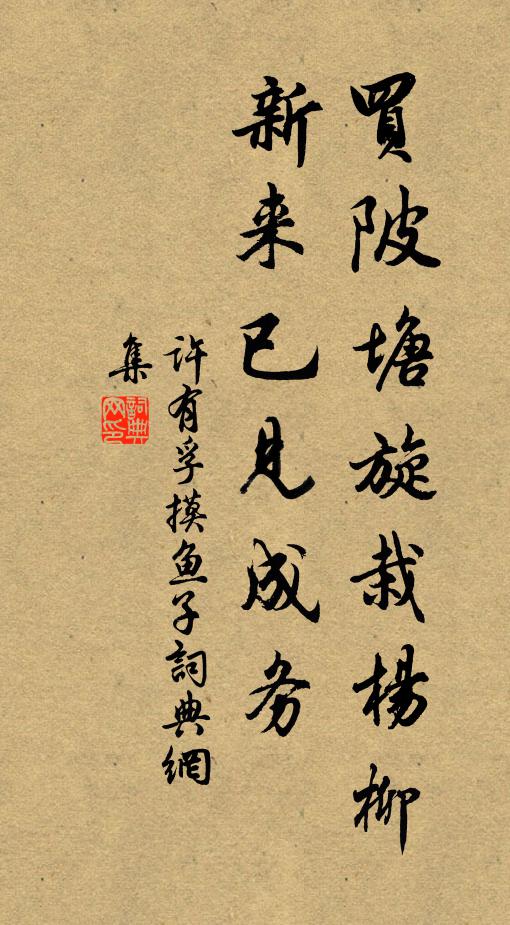 買陂塘旋栽楊柳
新来已見成务
許有孚摸鱼子詞典網
集
詞典网印